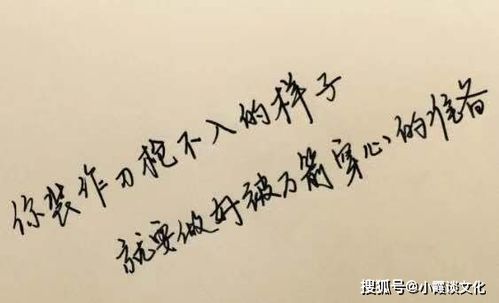 你装作刀枪不入的样子
就要做好被万箭穿心的准备
搜狐号@小霞谈文化